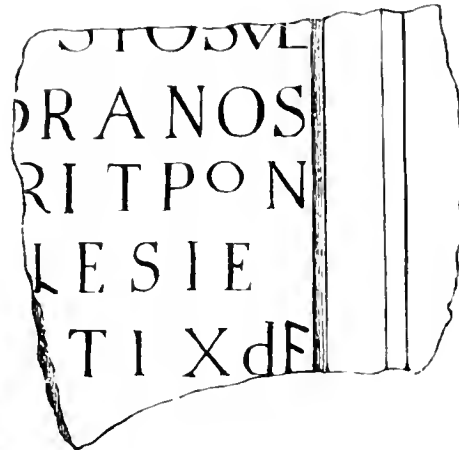 ORANOS
RITPON
LESIE
TIXdE